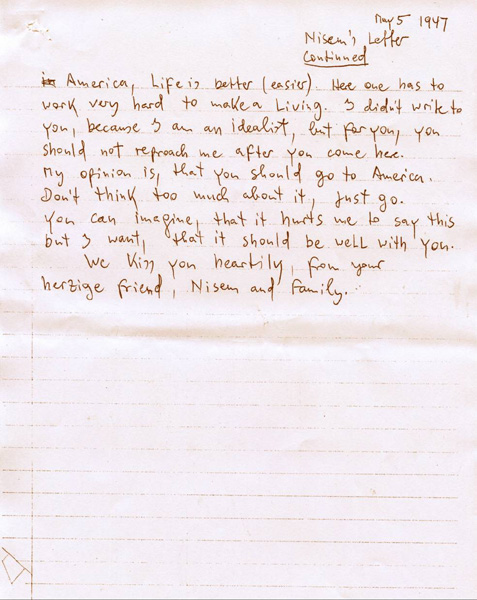 May 5 1947
Nisem's Letter
Continued
in America, Life is better (easier). Here one has to
work very hard to make a Living. I didn't write to
you, because I am an idealist, but for you, you
should not reproach me after you come here.
My opinion is, that you should go to America.
Don't think too much about it, just go.
You can imagine, that it hurts me to say this
but I want, that it should be well with you.
We Kiss you heartily, from your
herzige friend, Nisem and Family.